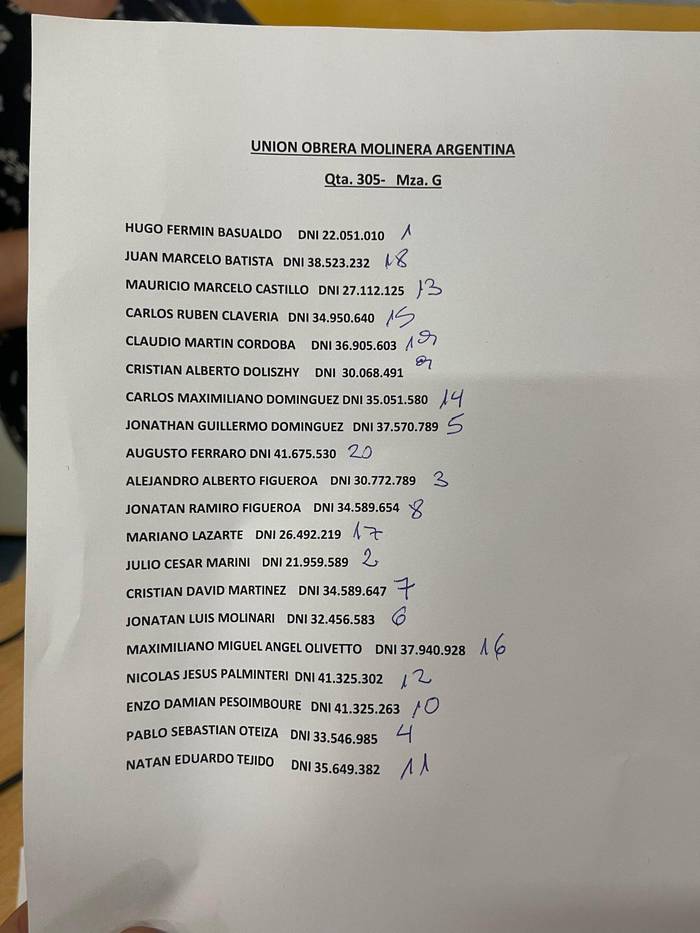 UNION OBRERA MOLINERA ARGENTINA
Qta. 305- Mza. G
HUGO FERMIN BASUALDO DNI 22.051.010 1
JUAN MARCELO BATISTA DNI 38.523.232 18
MAURICIO MARCELO CASTILLO DNI 27.112.125 13
CARLOS RUBEN CLAVERIA DNI 34.950.640 15
CLAUDIO MARTIN CORDOBA DNI 36.905.603 19
CRISTIAN ALBERTO DOLISZHY DNI 30.068.491 9
CARLOS MAXIMILIANO DOMINGUEZ DNI 35.051.580 14
JONATHAN GUILLERMO DOMINGUEZ DNI 37.570.789 5
AUGUSTO FERRARO DNI 41.675.530 20
ALEJANDRO ALBERTO FIGUEROA DNI 30.772.789 3
JONATAN RAMIRO FIGUEROA DNI 34.589.654 8
MARIANO LAZARTE DNI 26.492.219 17
JULIO CESAR MARINI DNI 21.959.589 2
CRISTIAN DAVID MARTINEZ DNI 34.589.647 7
JONATAN LUIS MOLINARI DNI 32.456.583 6
MAXIMILIANO MIGUEL ANGEL OLIVETTO DNI 37.940.928 16
NICOLAS JESUS PALMINTERI DNI 41.325.302 12
ENZO DAMIAN PESOIMBOURE DNI 41.325.263 10
PABLO SEBASTIAN OTEIZA DNI 33.546.985 4
NATAN EDUARDO TEJIDO DNI 35.649.382 11